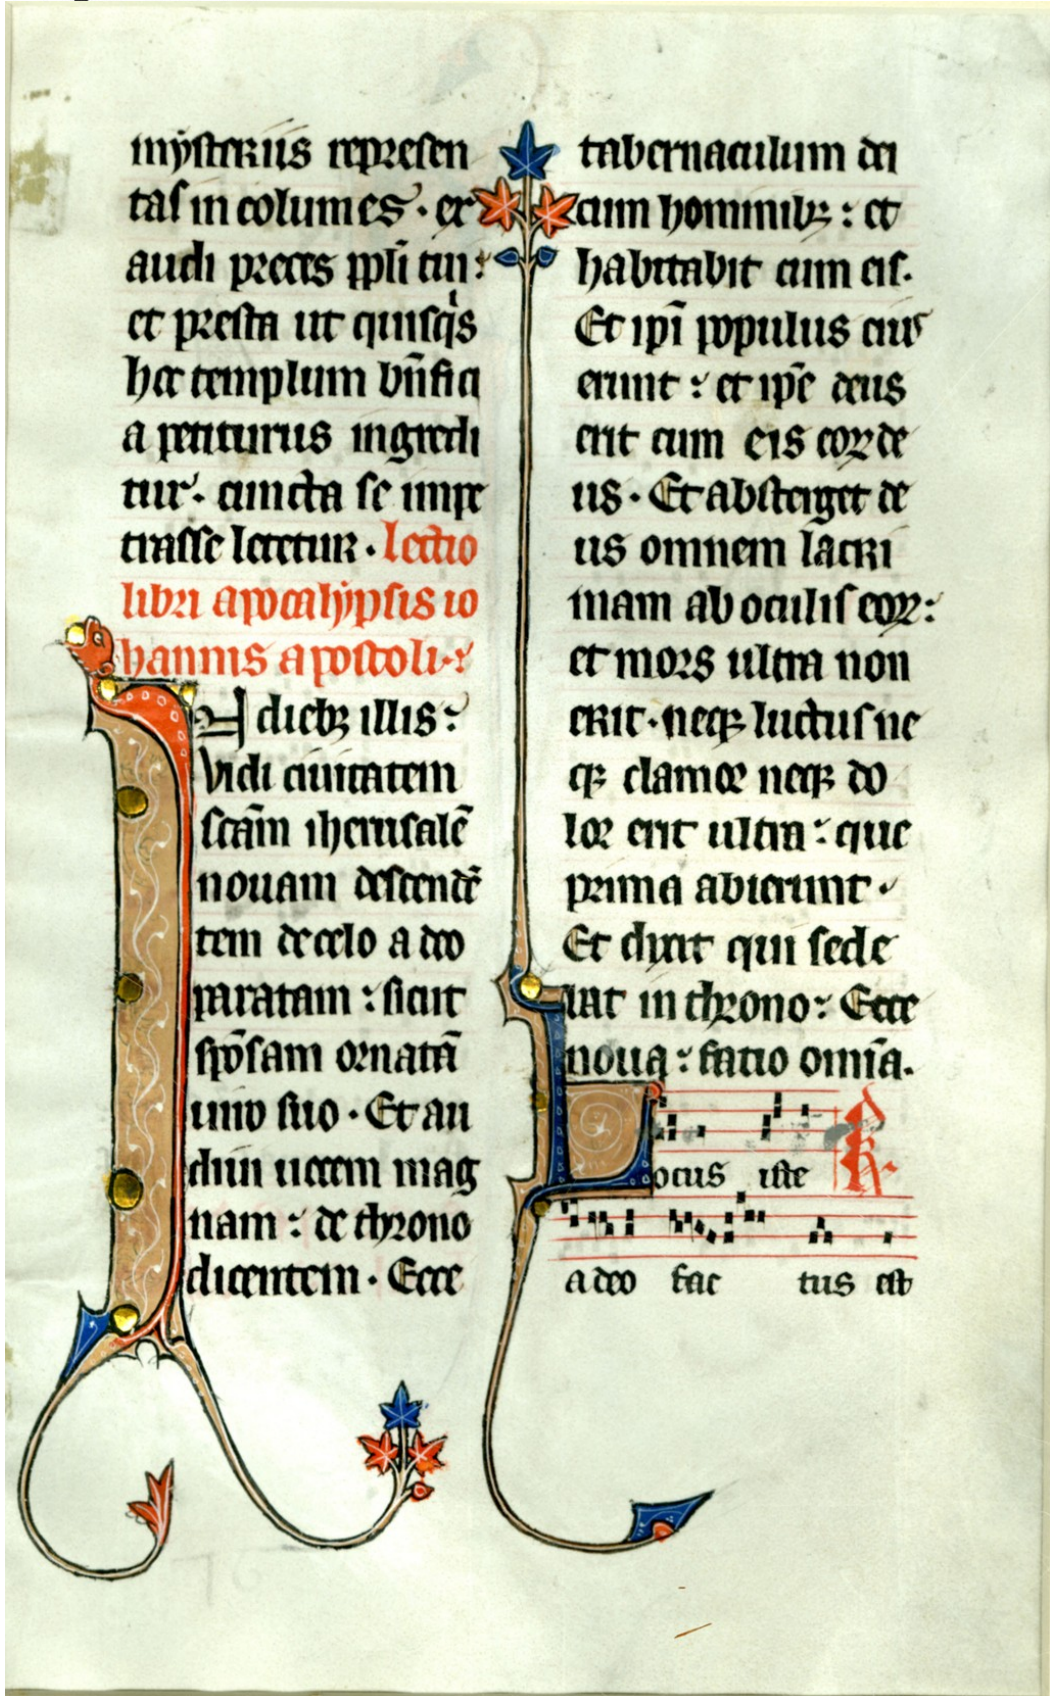 mysteriis represen
tas in columes · ex
audi preces ppli tui :
et presta ut quisqis
hoc templum bn̄fici
a petiturus ingredi
tur · cuncta se impe
trasse letetur · lectio
libri apocalypsis io
hannis apostoli ·:
In dieb; illis :
Vidi ciuitatem
scām iherusalē
nouam descendē
tem de celo a deo
paratam : sicut
spōsam ornatā
uiro suo · Et au
diui uocem mag
nam : de throno
dicentem · Ecce
tabernaculum dei
cum hominib; : et
habitabit cum eis ·
Et ipī populus eius
erunt : et ip̄e deus
erit cum eis eoꝝ de
us · Et absterget de
us omnem lacri
mam ab oculis eoꝝ :
et mors ultra non
erit · neqꝫ luctus ne
qꝫ clamor neqꝫ do
lor erit ultra : que
prima abierunt ·
Et dixit qui sede
bat in throno : Ecce
noua : facio omīa ·
Locus iste
a deo fac tus est